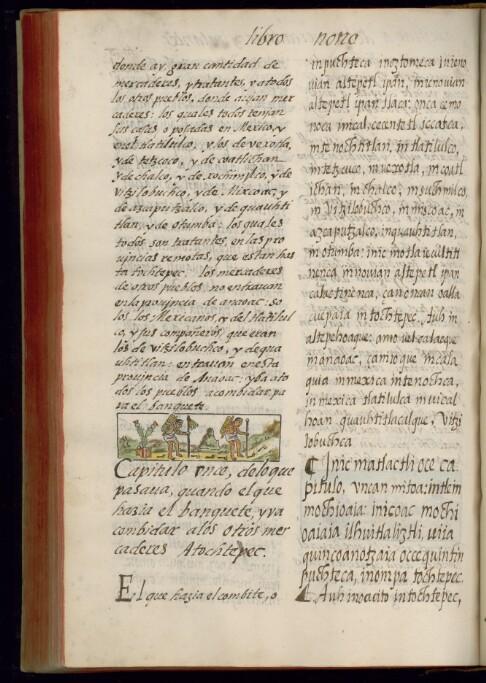 libro nono
donde ay gran cantidad de
mercaderes, y tratantes, y a todos
los otros pueblos, donde auian mer
caderes: los quales todos tenian
sus casas o posadas en Mexico, y
en el tlatilulco, y los de vexotla,
y de tetzcoco, y de coatlichan
y de chalco, y de xochimilco, y de
vitzilobuchco, y de Mixcoac, y
de azcaputzalco, y de quauhti
tlan, y de otumba: los quales
todos son tratantes, en las pro
uincias remotas, que estan has
ta tuchtepec: los mercaderes
de otros pueblos no entrauan
en la prouincia de anaoac: so
los los Mexicanos, y del tlatilul
co, y sus compañeros que eran
los de vitzilobuchco, y de qua
uhtitlan: entrauan en esta
prouincia de Anaoac: yba a to
dos los pueblos a combidar pa
ra el banquete.
Capitulo onze, de lo que
pasaua, quando el que
hazia el banquete, yva
combidar a los otros mer
caderes A tochtepec.
El que hazia el combite, o
in puchteca in oztomeca in ino
vian altepetl ipan, in novian
altepetl ipan tlaca: onca cemo
noca in cal, cecentetl
in tenochtitlan, in tlatilulco,
in tetzcuco, in vexotla, in coatl
ichan, in chalco, in suchmilco,
in Vitzilobuchco, in mixcoac, in
azcaputzalco, in quauhtitlan,
in otumba: inic
nenca in novian altepetl ipan
calaquia in tochtepec. Auh in
altepehoaque: amo vel calaque
in anaoac, can ioque in cala
quia in mexica in tenochca,
in mexica tlatilulca in uical
hoan quauhtitlacalque, Vitzi
lobuchca
Inic matlactli oce ca
pitulo, vncan mitoa: in tlein
mochioaia: in icoac mochi
oaiaia ilhuitlaliztli, in iia
quincoanotzaia occequintin
puchteca, in ompa tochtepec.
Auh in oacito in tochtepec,